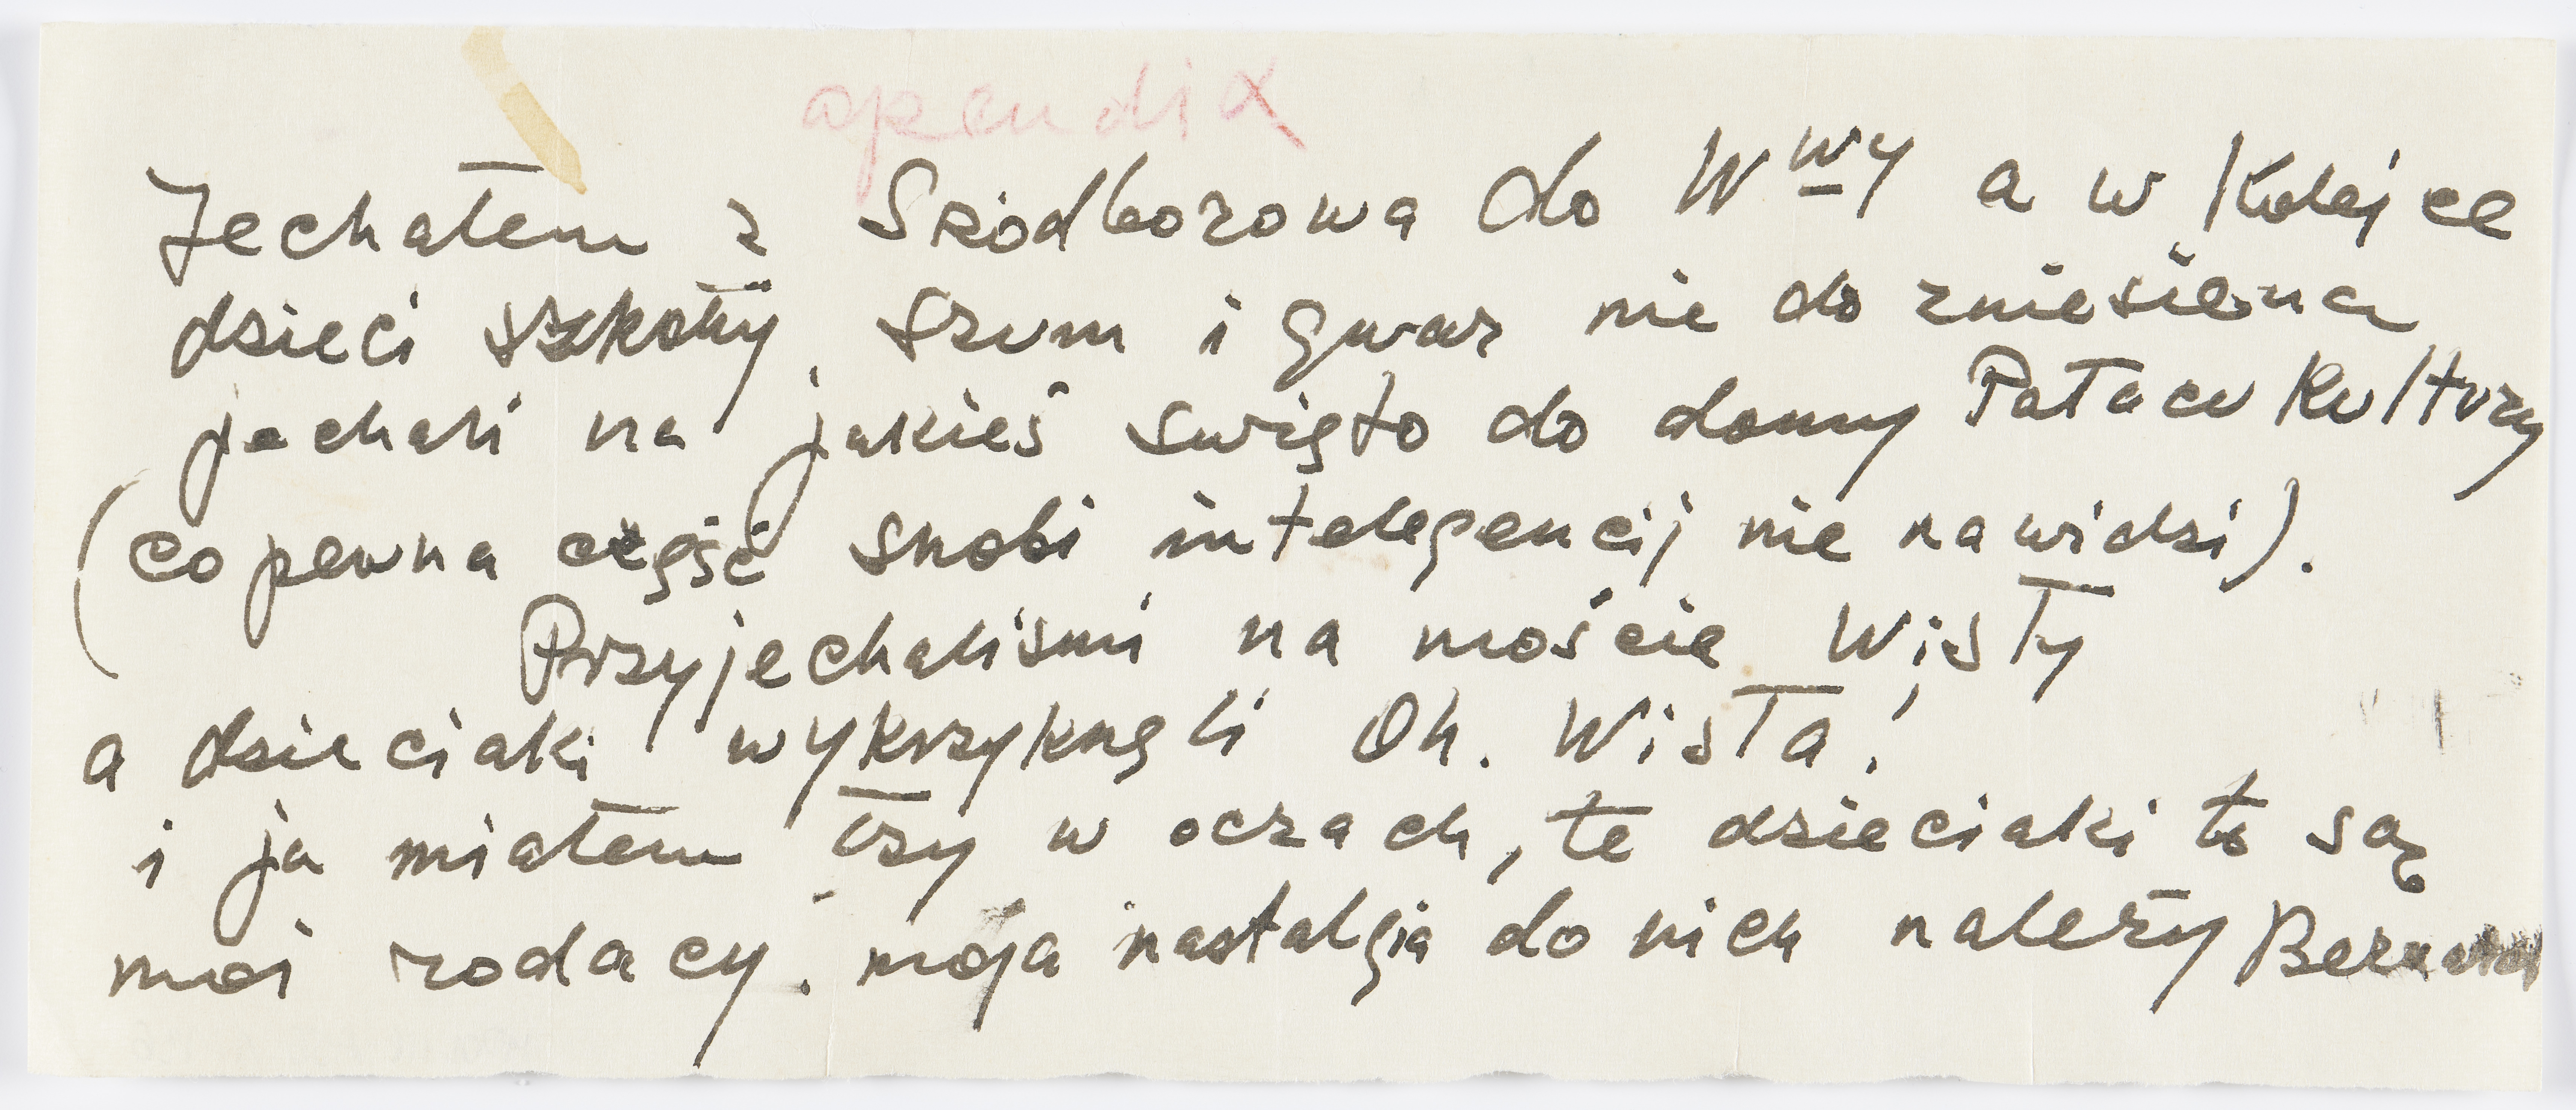 apendix
Jechałem z Sródborowa do Wwy a w Kolejce
dzieci szkoły, szum i gwar nie do zniesiena
jechali na jakieś swięto do domy Pałacu Kultury
(co pewna część snobi intelegencij nie nawidzi).
Przyjechalismi na moście Wisły
a dzieciaki wykrzyknęli Oh. Wisła!
i ja miałem łzy w oczach, te dzieciaki to są
moi rodacy. moja nastalgia do nich należy